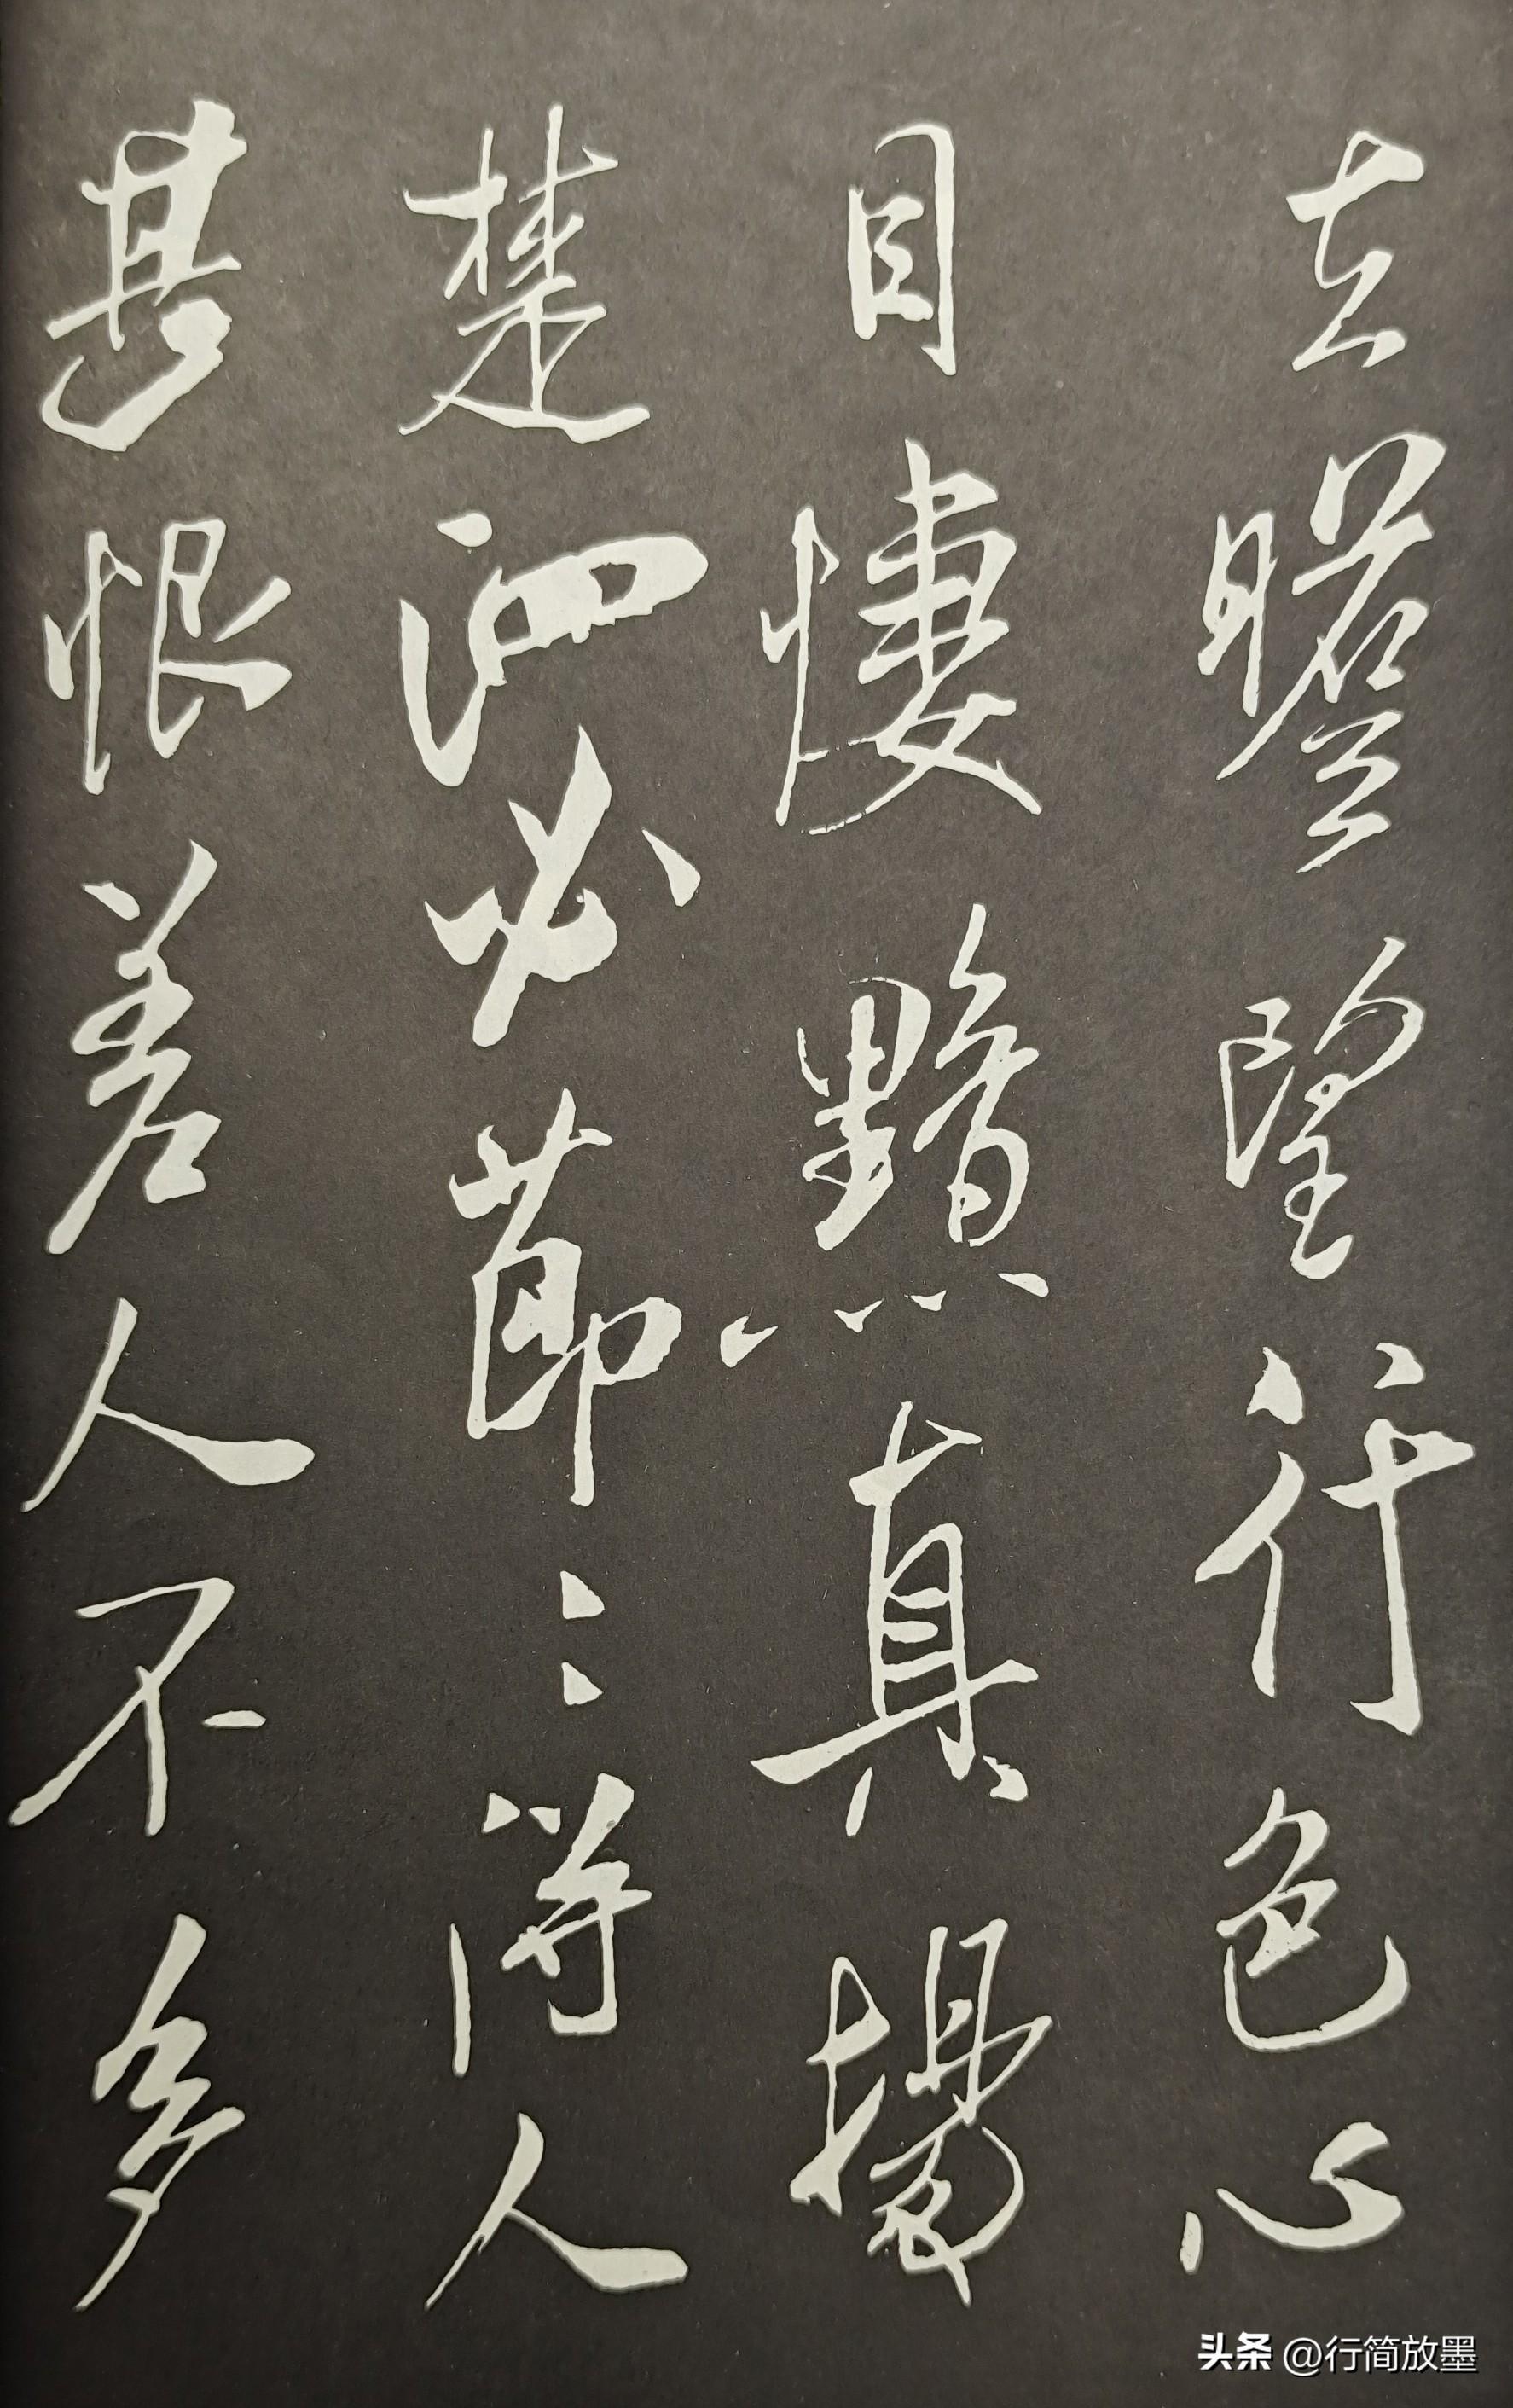 立瞻望行色心
目悽黯真揚
楚泗必節〻得人
甚恨差人不多
头条 @行简放墨